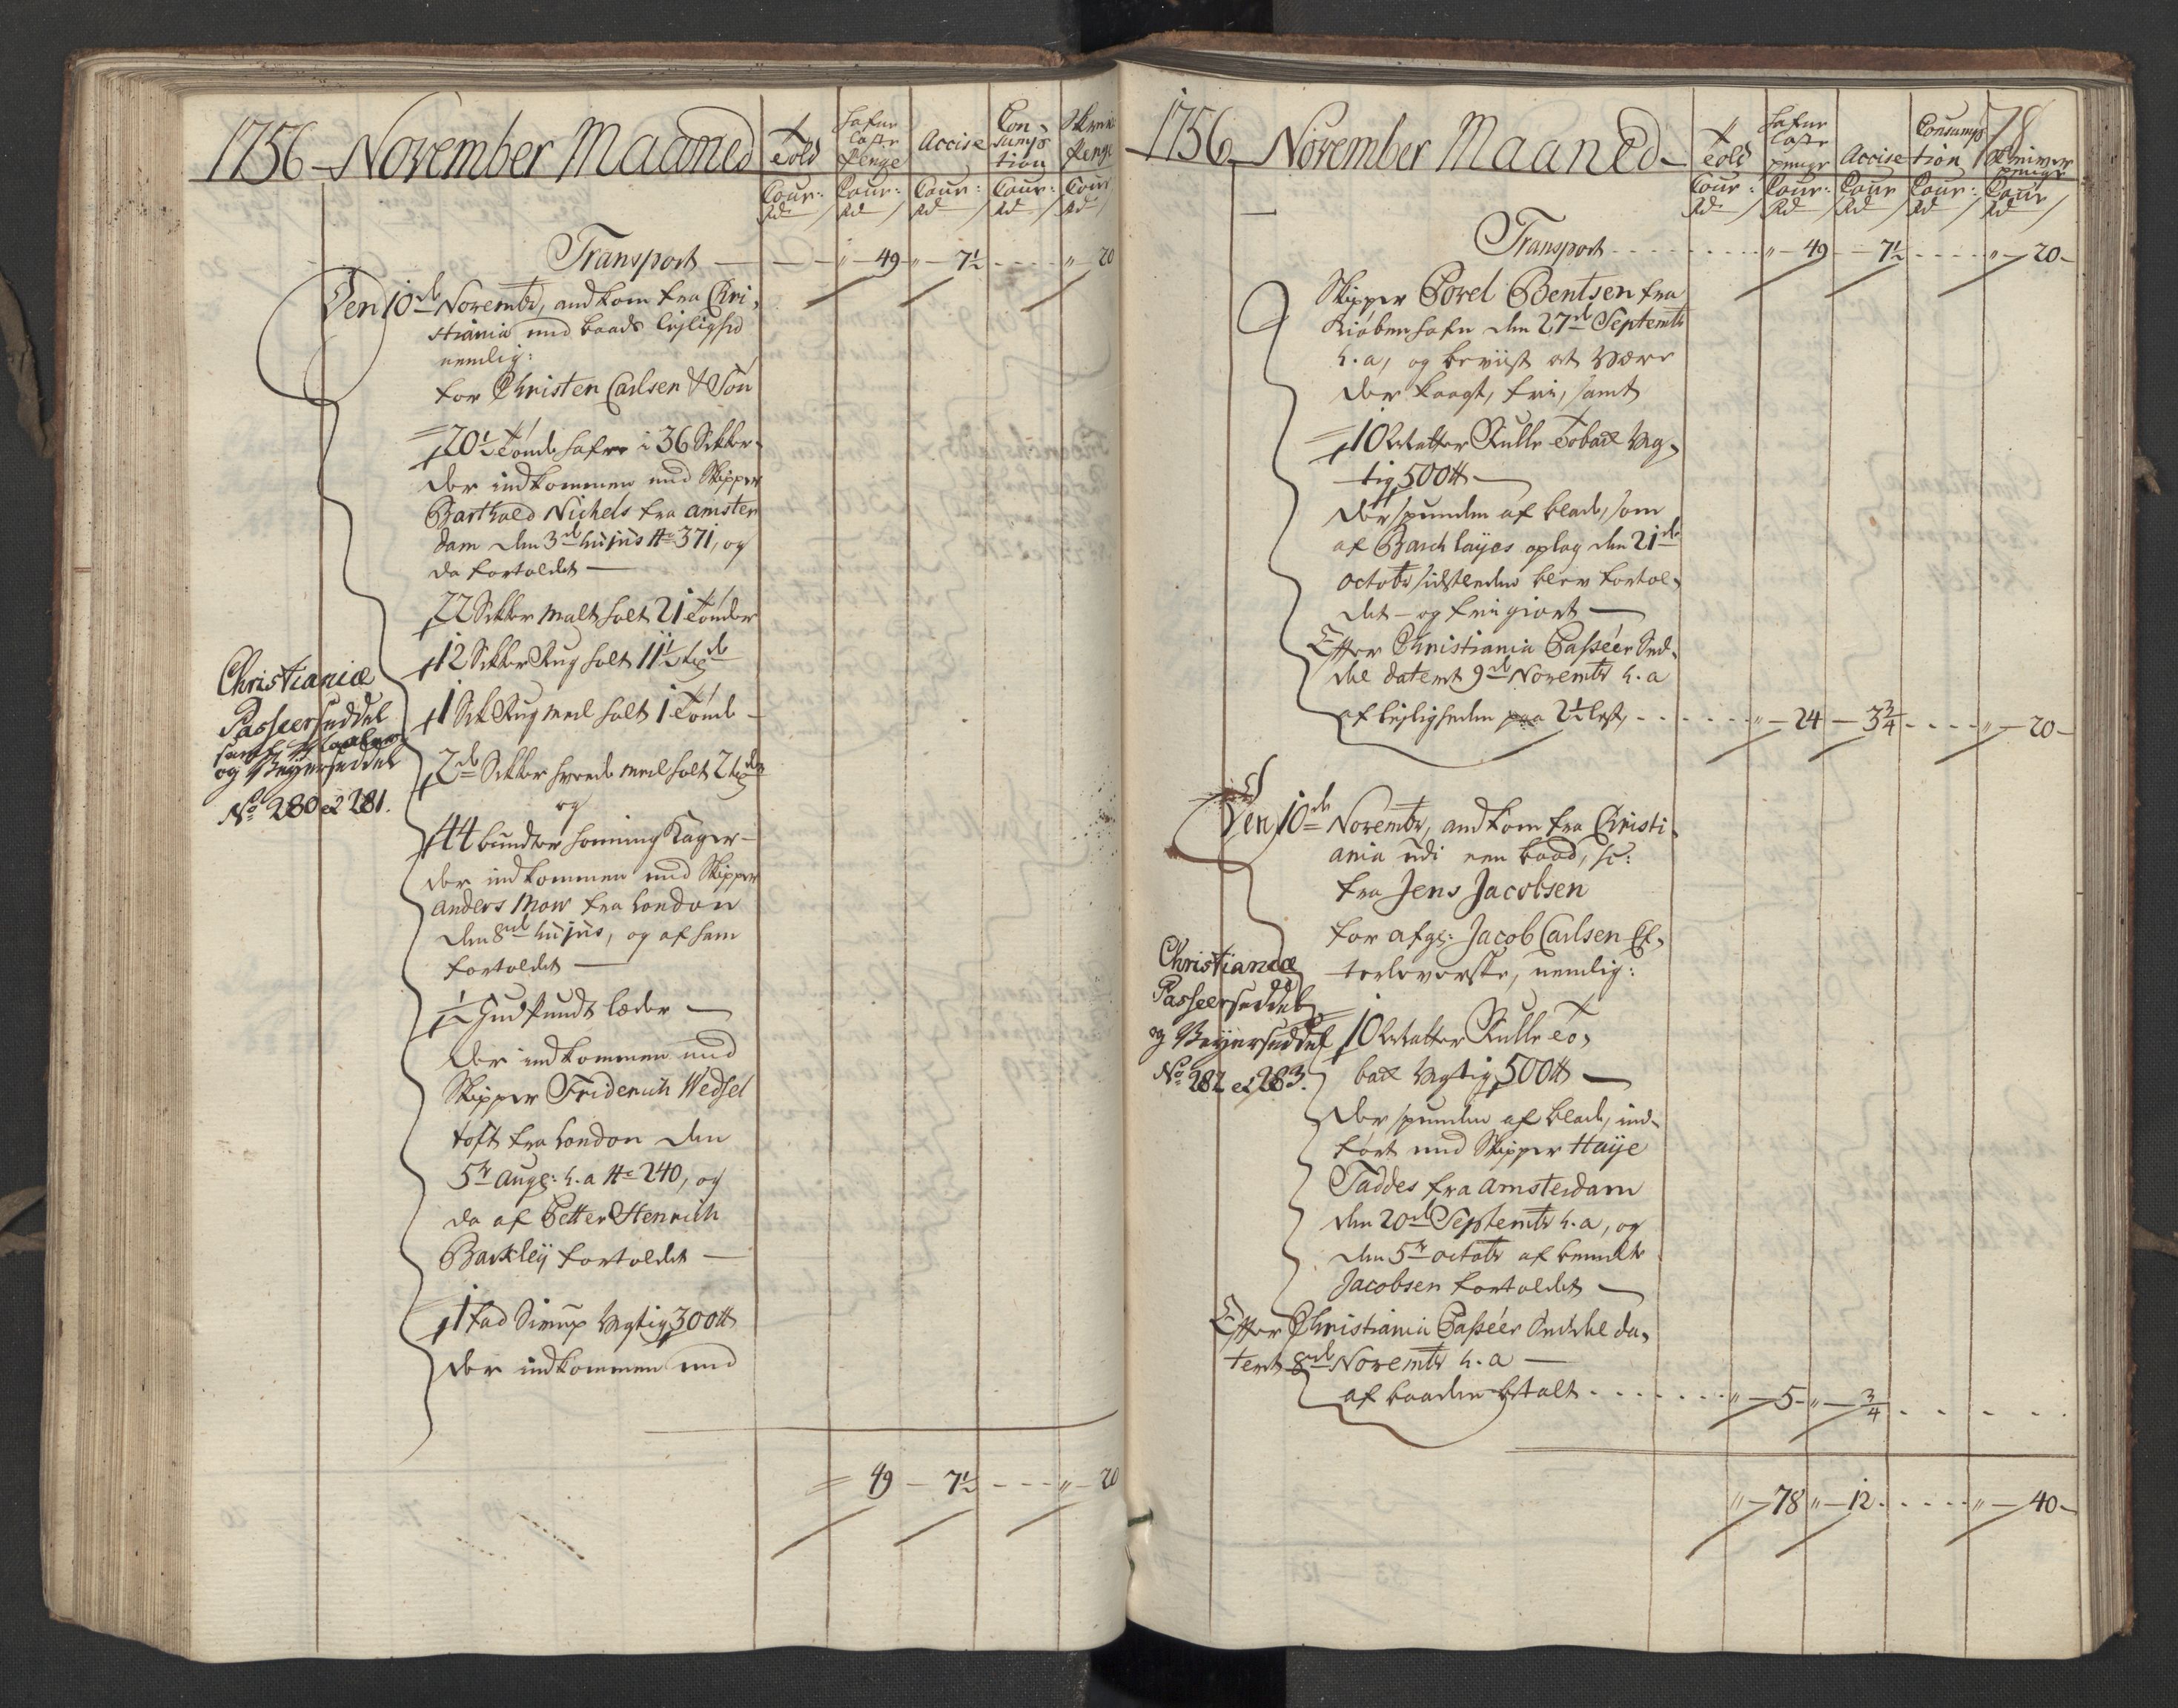 1756 – November Maaned
Told
Hafne
Laste
Penge
Accise
Con-
sump-
tion
Skriver
Penge
Cour: Cour: Cour: Cour: Cour
Rd Rd Rd Rd Rd
Transport — " – 49 – " – 7½ - - - " – 20
Den 10de Novembr, andkom fra Chri-
stiania med baads leylighed
nemlig:
for Christen Carlsen & Søn
20½ Tønde hafre i 36 Sekker-
der indkommen med Skipper
Barthold Nichels fra Amster
dam den 3de hujus No 371, og
da fortoldet —
22 Sekker Malt holt 21 Tønder
12 Sekker Rug holt 11½ td
1 Sek Rug Meel holt 1 Tønde –
2de Sekker hvede Meel holt 2 tdr
og
44 bundter honning Kager –
der indkommen med Skipper
Anders Mow fra London
den 8de hujus, og af ham
fortoldet —
½ Hud Pundt læder —
der indkommen med
Skipper Friderich Wedsel
toft fra London den
5te Aug: h. a No 240, og
da af Petter Henrich
Barkley fortoldet —
1 fad Sirup Vegtig 300 ℔
der indkommen med
Christianiæ
Passeerseddel
samt
og Veyerseddel
No 280 et 281.
49 – 7½ - - - " – 20
1756 – November Maaned –
78
Told
Hafne
Laste
penge
Accise
Consump
tion
Skriver
penge
Cour: Cour: Cour Cour: Cour
Rd Rd Rd Rd Rd
Transport - - - - " – 49 – 7½ - - - - " – 20 –
Skipper Povel Bentsen fra
Kiøbenhafn den 27de Septembr
h. a, og beviist at være
der kaagt, frie, samt
10 Matter Rulle Toback Veg-
tig 500 ℔ —
der spunden af blade, som
af Barchlayes oplag den 21de
Octobr sidstleden blev fortol-
det – og frie giort —
Efter Christiania Passéer Sed-
del datert 9de Novembr h. a
af leyligheden paa 2½ lest, - - - - " – 24 – 3¾ - - - - " – 20 –
Den 10de Novembr, andkom fra Christi-
ania udi een baad, sc:
fra Jens Jacobsen
for afg: Jacob Carlsen Ef-
terleverske, nemlig:
10 Matter Rulle To-
back Vegtig 500 ℔ —
der spunden af blade, ind-
ført med Skipper Haije
Taddes fra Amsterdam
den 20de Septembr h. a, og
den 5te Octobr af bemelte
Jacobsen fortoldet —
Efter Christiania Passéer Seddel da-
tert 8de Novembr h. a —
af baaden betalt - - - - - " – 5 – " – ¾ - - - -
Christianiæ
Passeerseddel
og Veyerseddel
No 282 et 283.
" – 78 " – 12 - - - - " – 40 –